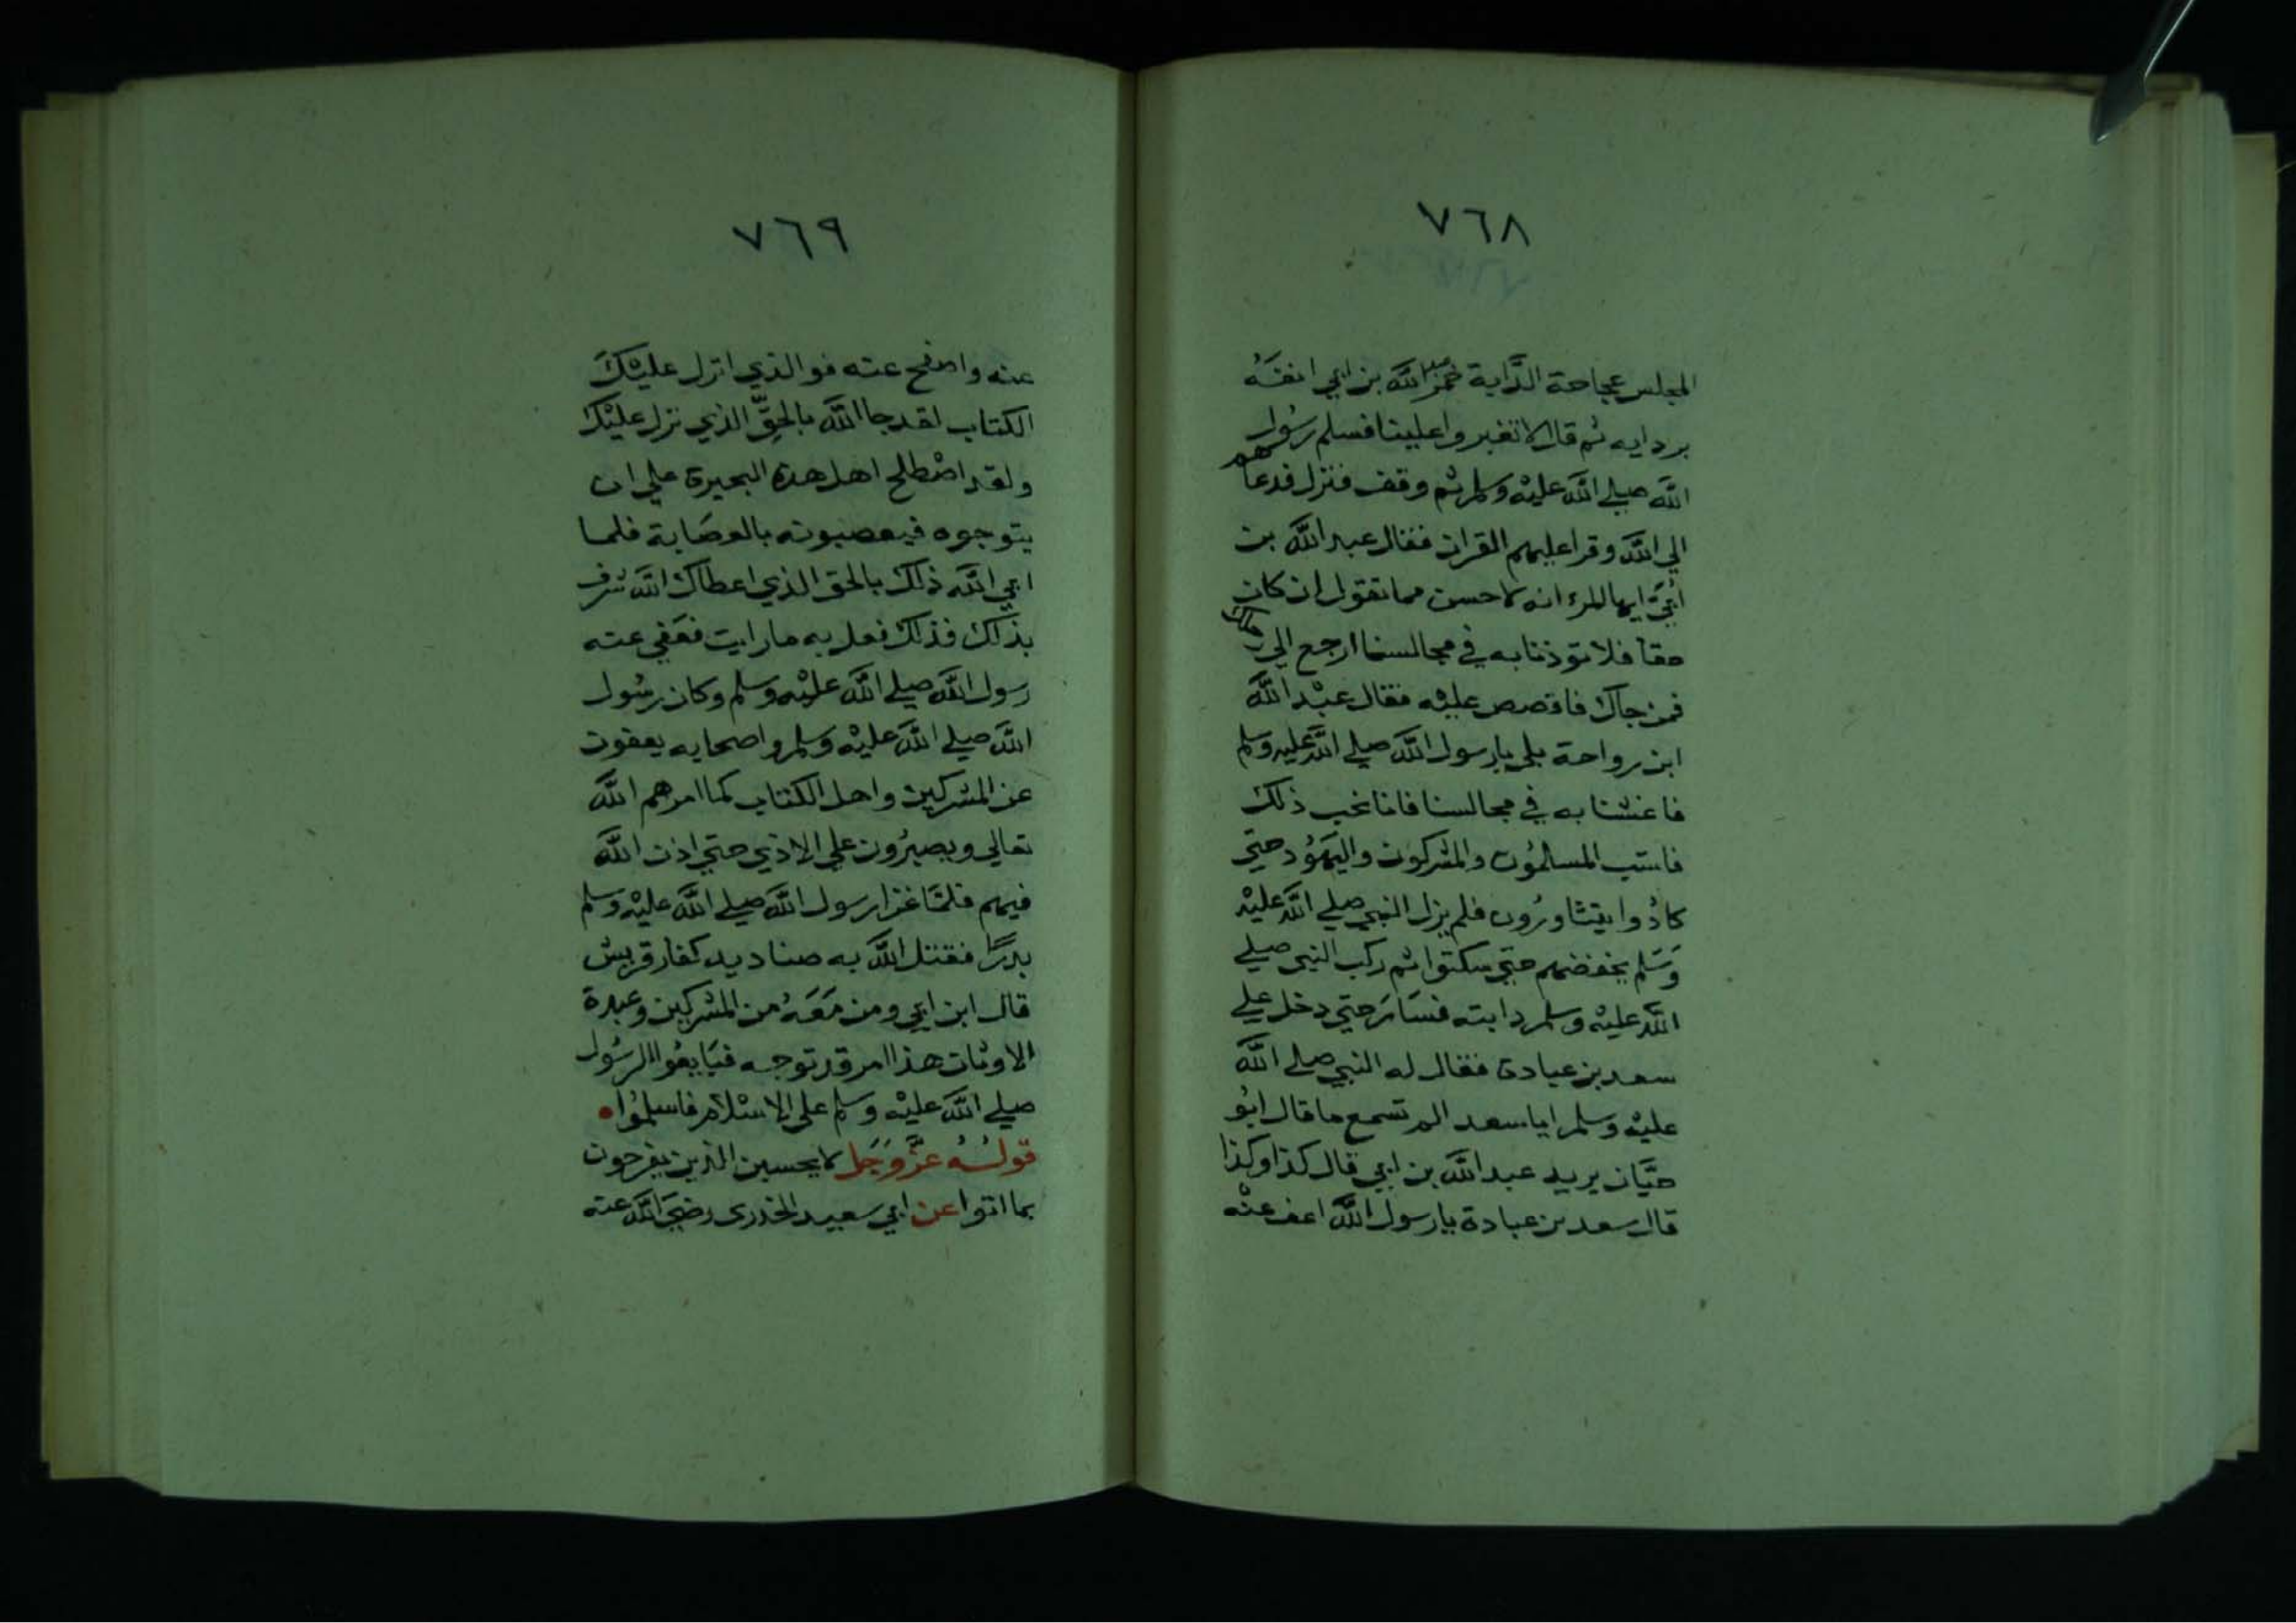 ٧٦٨
المجلس عجاجة الدَّابة خمر عبد الله بن ابي انفَهُ
بردايه ثم قال لا تغبروا علينا فسلم رسُول
الله صلي الله عليْه وسلم ثم وقف فنزل فدعاهم
الي الله وقرا عليهم القران فقال عبد الله بن
أُبَيّ ايها المرء انه لا حسن مما تقول ان كان
حقا فلا توذنا به في مجالسنا ارجع الي رحلك
فمن جاك فاقصص عليْه فقال عبْد الله
ابن رواحة بلي يارسول الله صلي الله عليه وسلم
فاغشنا به في مجالسنا فانا نحب ذلك
فاستب المسلمُون والمشركون واليهُود حتي
كادُوا يتثاورُون فلم يزل النبي صلي الله عليْه
وَسَلم يخفضهم حتي سكتوا ثم ركب النبي صلي
الله عليْه وسلم دابته فسَارَ حتي دخل علي
سعد بن عبادة فقال له النبي صلي الله
عليْه وسلم ايا سعد الم تسمع ما قال ابُو
حبَّان يريد عبد الله بن ابي قال كذا وكذا
قال سعد بن عبادة يارسول الله اعف عنْه
٧٦٩
عنه واصفح عنه فوالذي انزل عليْكَ
الكتاب لقد جا الله بالحقِّ الذي نزل عليْك
ولقد اصْطلح اهل هذه البحيرة علي ان
يتوجوه فيعصبونه بالعصَابة فلما
ابي الله ذلك بالحق الذي اعطاك الله شرف
بذلك فذلك فعل به ما رايت فعَفي عنه
رسول الله صلي الله عليْه وسلم وكان رسُول
الله صلي الله عليْه وسلم واصحابه يعفون
عن المشركين واهل الكتاب كما امرهم الله
تعالي ويصبرُون علي الاذي حتي اذن الله
فيهم فلمَّا غزا رسول الله صلي الله عليْه وسلم
بدرًا فقتل الله به صناديد كفار قريش
قال ابن ابي ومن مَعَهُ من المشركين وعبدة
الاوثان هذا امر قد توجه فبَايعُوا الرسُول
صلي الله عليْه وسلم علي الاسْلام فاسلمُوا
قولُهُ عزَّ وَجَل لا يحسبن الذين يفرحون
بما اتوا عن ابي سعيد الخدري رضيَ الله عنه